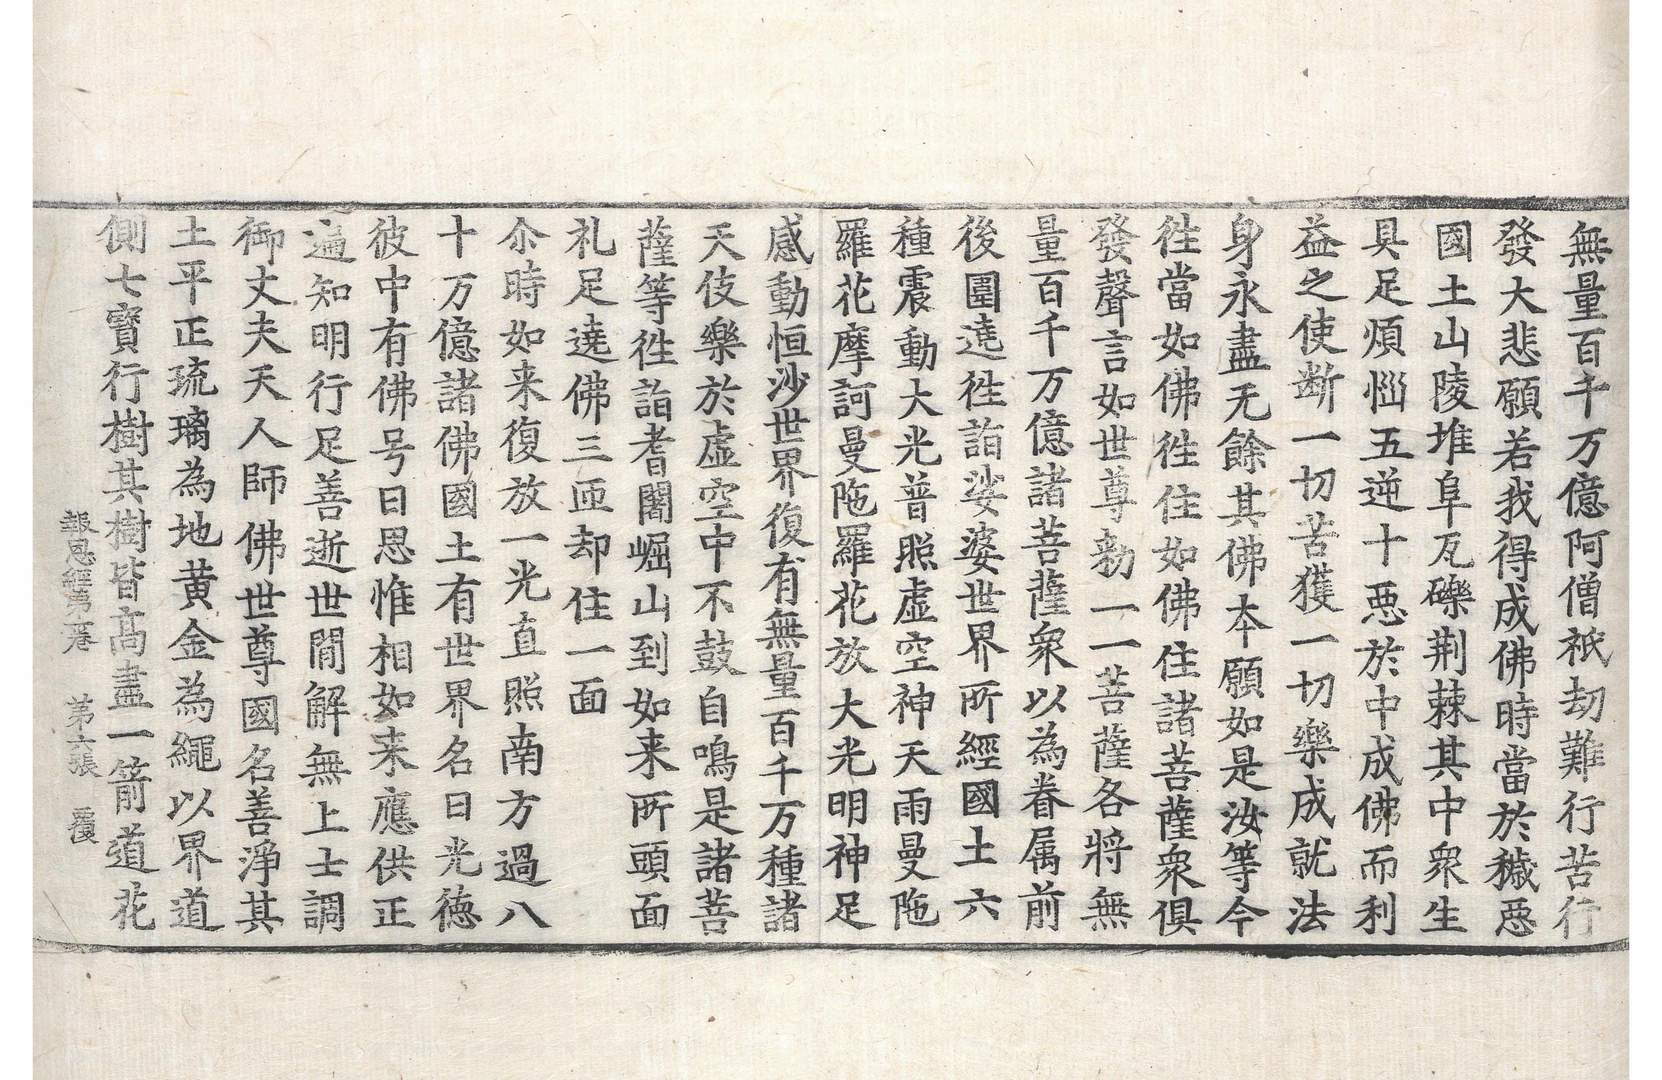 無量百千万億阿僧祇劫難行苦行
發大悲願若我得成佛時當於穢惡
國土山陵堆阜瓦礫荆棘其中衆生
具足煩惱五逆十惡於中成佛而利
益之使断一切苦獲一切樂成就法
身永盡无餘其佛本願如是汝等今
徃當如佛徃住如佛住諸菩薩衆俱
發聲言如世尊勑一一菩薩各將無
量百千万億諸菩薩衆以為眷属前
後圍遶徃詣娑婆世界所經國土六
種震動大光普照虛空神天雨曼陁
羅花摩訶曼陁羅花放大光明神足
感動恒沙世界復有無量百千万種諸
天伎樂於虛空中不鼓自鳴是諸菩
薩等徃詣耆闍崛山到如来所頭面
礼足遶佛三匝却住一面
尒時如来復放一光直照南方過八
十万億諸佛國土有世界名日光德
彼中有佛号曰思惟相如来應供正
遍知明行足善逝世間解無上士調
御丈夫天人師佛世尊國名善淨其
土平正琉璃為地黄金為繩以界道
側七寶行樹其樹皆髙盡一箭道花
報恩經第一卷 第六張 覆